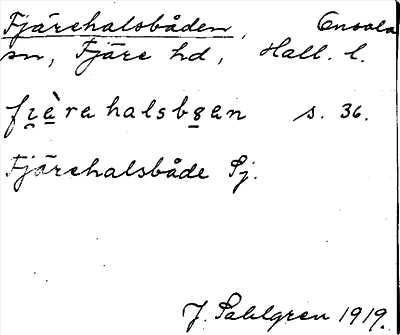 Fjärehalsbåden, Onsala
sn, Fjäre hd, Hall. l.
fi̯æ̀rahalsbɷan s. 36.
Fjärehalsbåde Sj.
J. Sahlgren 1919.